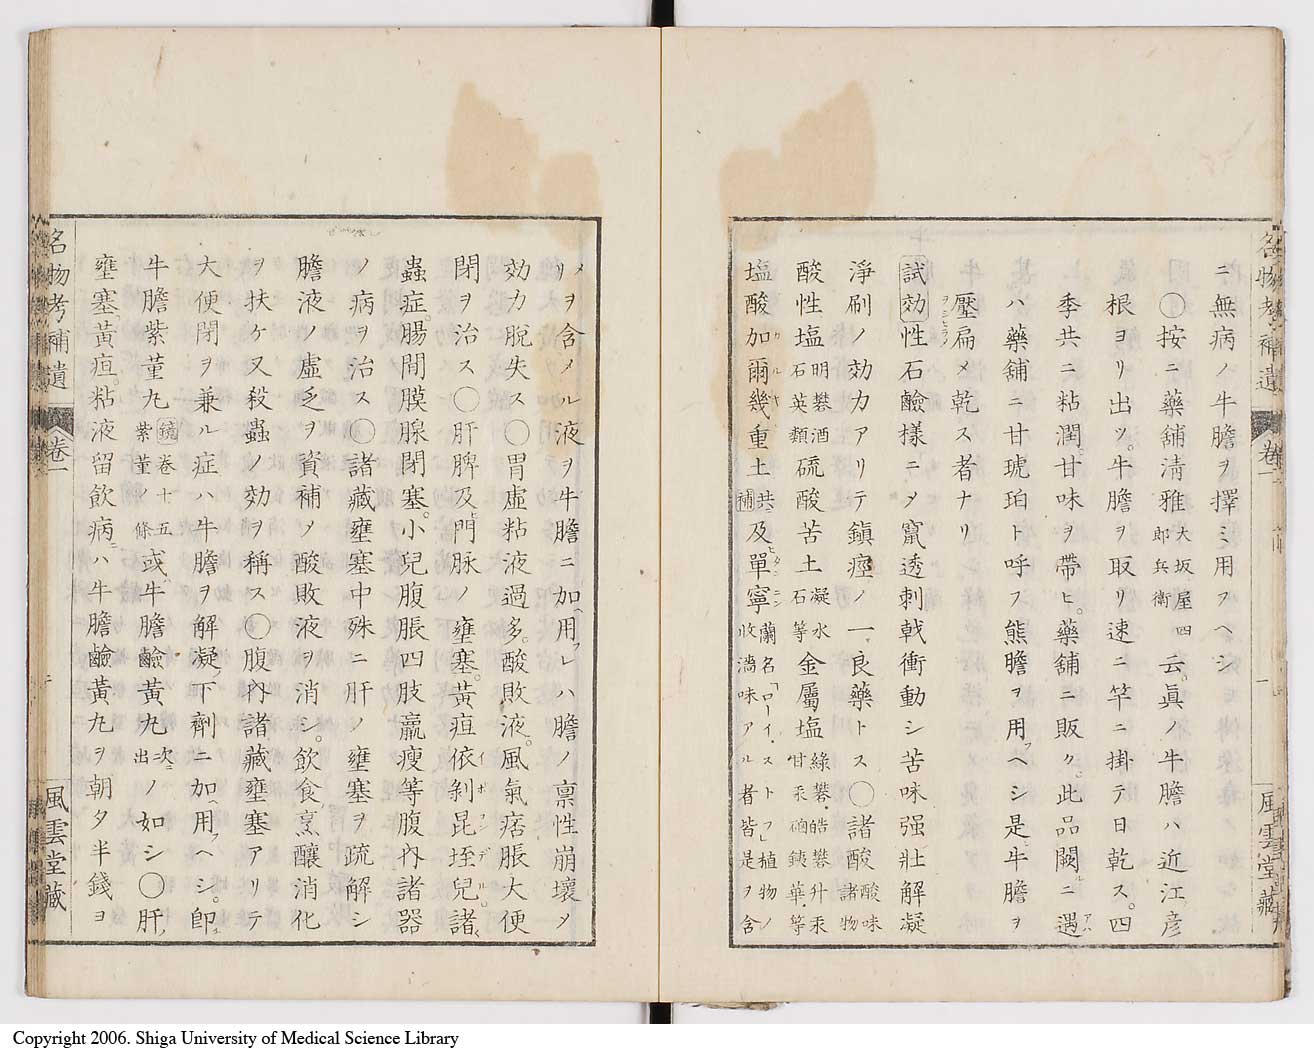 名物考補遺 卷一 一 風雲堂藏
ニ無病ノ牛膽ヲ擇ミ用フヘシ
〇按ニ藥舖淸雅大坂屋四郎兵衛云眞ノ牛膽ハ近江彦
根ヨリ出ツ牛膽ヲ取リ速ニ竿ニ掛テ日乾ス四
季共ニ粘潤甘味ヲ帶ヒ藥舖ニ販ク此品闕ニ遇
ハ藥舖ニ甘琥珀ト呼フ熊膽ヲ用フヘシ是牛膽ヲ
壓扁メ乾ス者ナリ
試効性石鹼樣ニメ竄透刺戟衝動シ苦味强壯解凝
淨刷ノ効力アリテ鎭痙ノ一良藥トス〇諸酸酸味諸物
酸性塩明攀酒石英類硫酸苦土凝水石等金屬塩綠攀皓攀升汞甘汞硇銕華等
塩酸加爾幾重土共補及單寧蘭名「ローイ、ストフ」植物ノ收澁味アル者皆是ヲ含
メリヲ含メル液ヲ牛膽ニ加ヘ用フレハ膽ノ禀性崩壞ノ
効力脫失ス〇胃虛粘液過多酸敗液風氣痞脹大便
閉ヲ治ス〇肝脾及門脉ノ壅塞黃疸依剝昆垤兒諸
蟲症腸間膜腺閉塞小兒腹脹四肢羸瘦等腹內諸器
ノ病ヲ治ス〇諸藏壅塞中殊ニ肝ノ壅塞ヲ疏解シ
膽液ノ虛乏ヲ資補ノ酸敗液ヲ消シ飮食烹釀消化
ヲ扶ケ又殺蟲ノ効ヲ稱ス〇腹內諸藏壅塞アリテ
大便閉ヲ兼ル症ハ牛膽ヲ解凝下劑ニ加ヘ用フヘシ卽チ
牛膽紫菫丸鏡卷十五紫菫ノ條或ハ牛膽鹼黃丸次ニ出ノ如シ〇肝
壅塞黃疸粘液留飮病ハ牛膽鹼黃丸ヲ朝夕半錢ヨ
名物考補遺 卷一 風雲堂藏
Copyright 2006. Shiga University of Medical Science Library